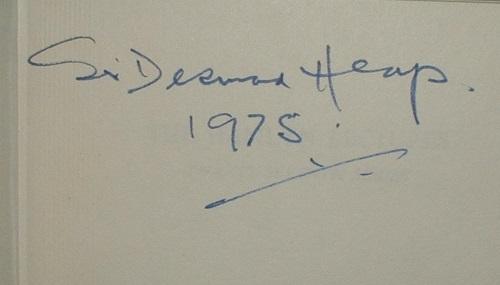 Sir Desmond Heap.
1975.